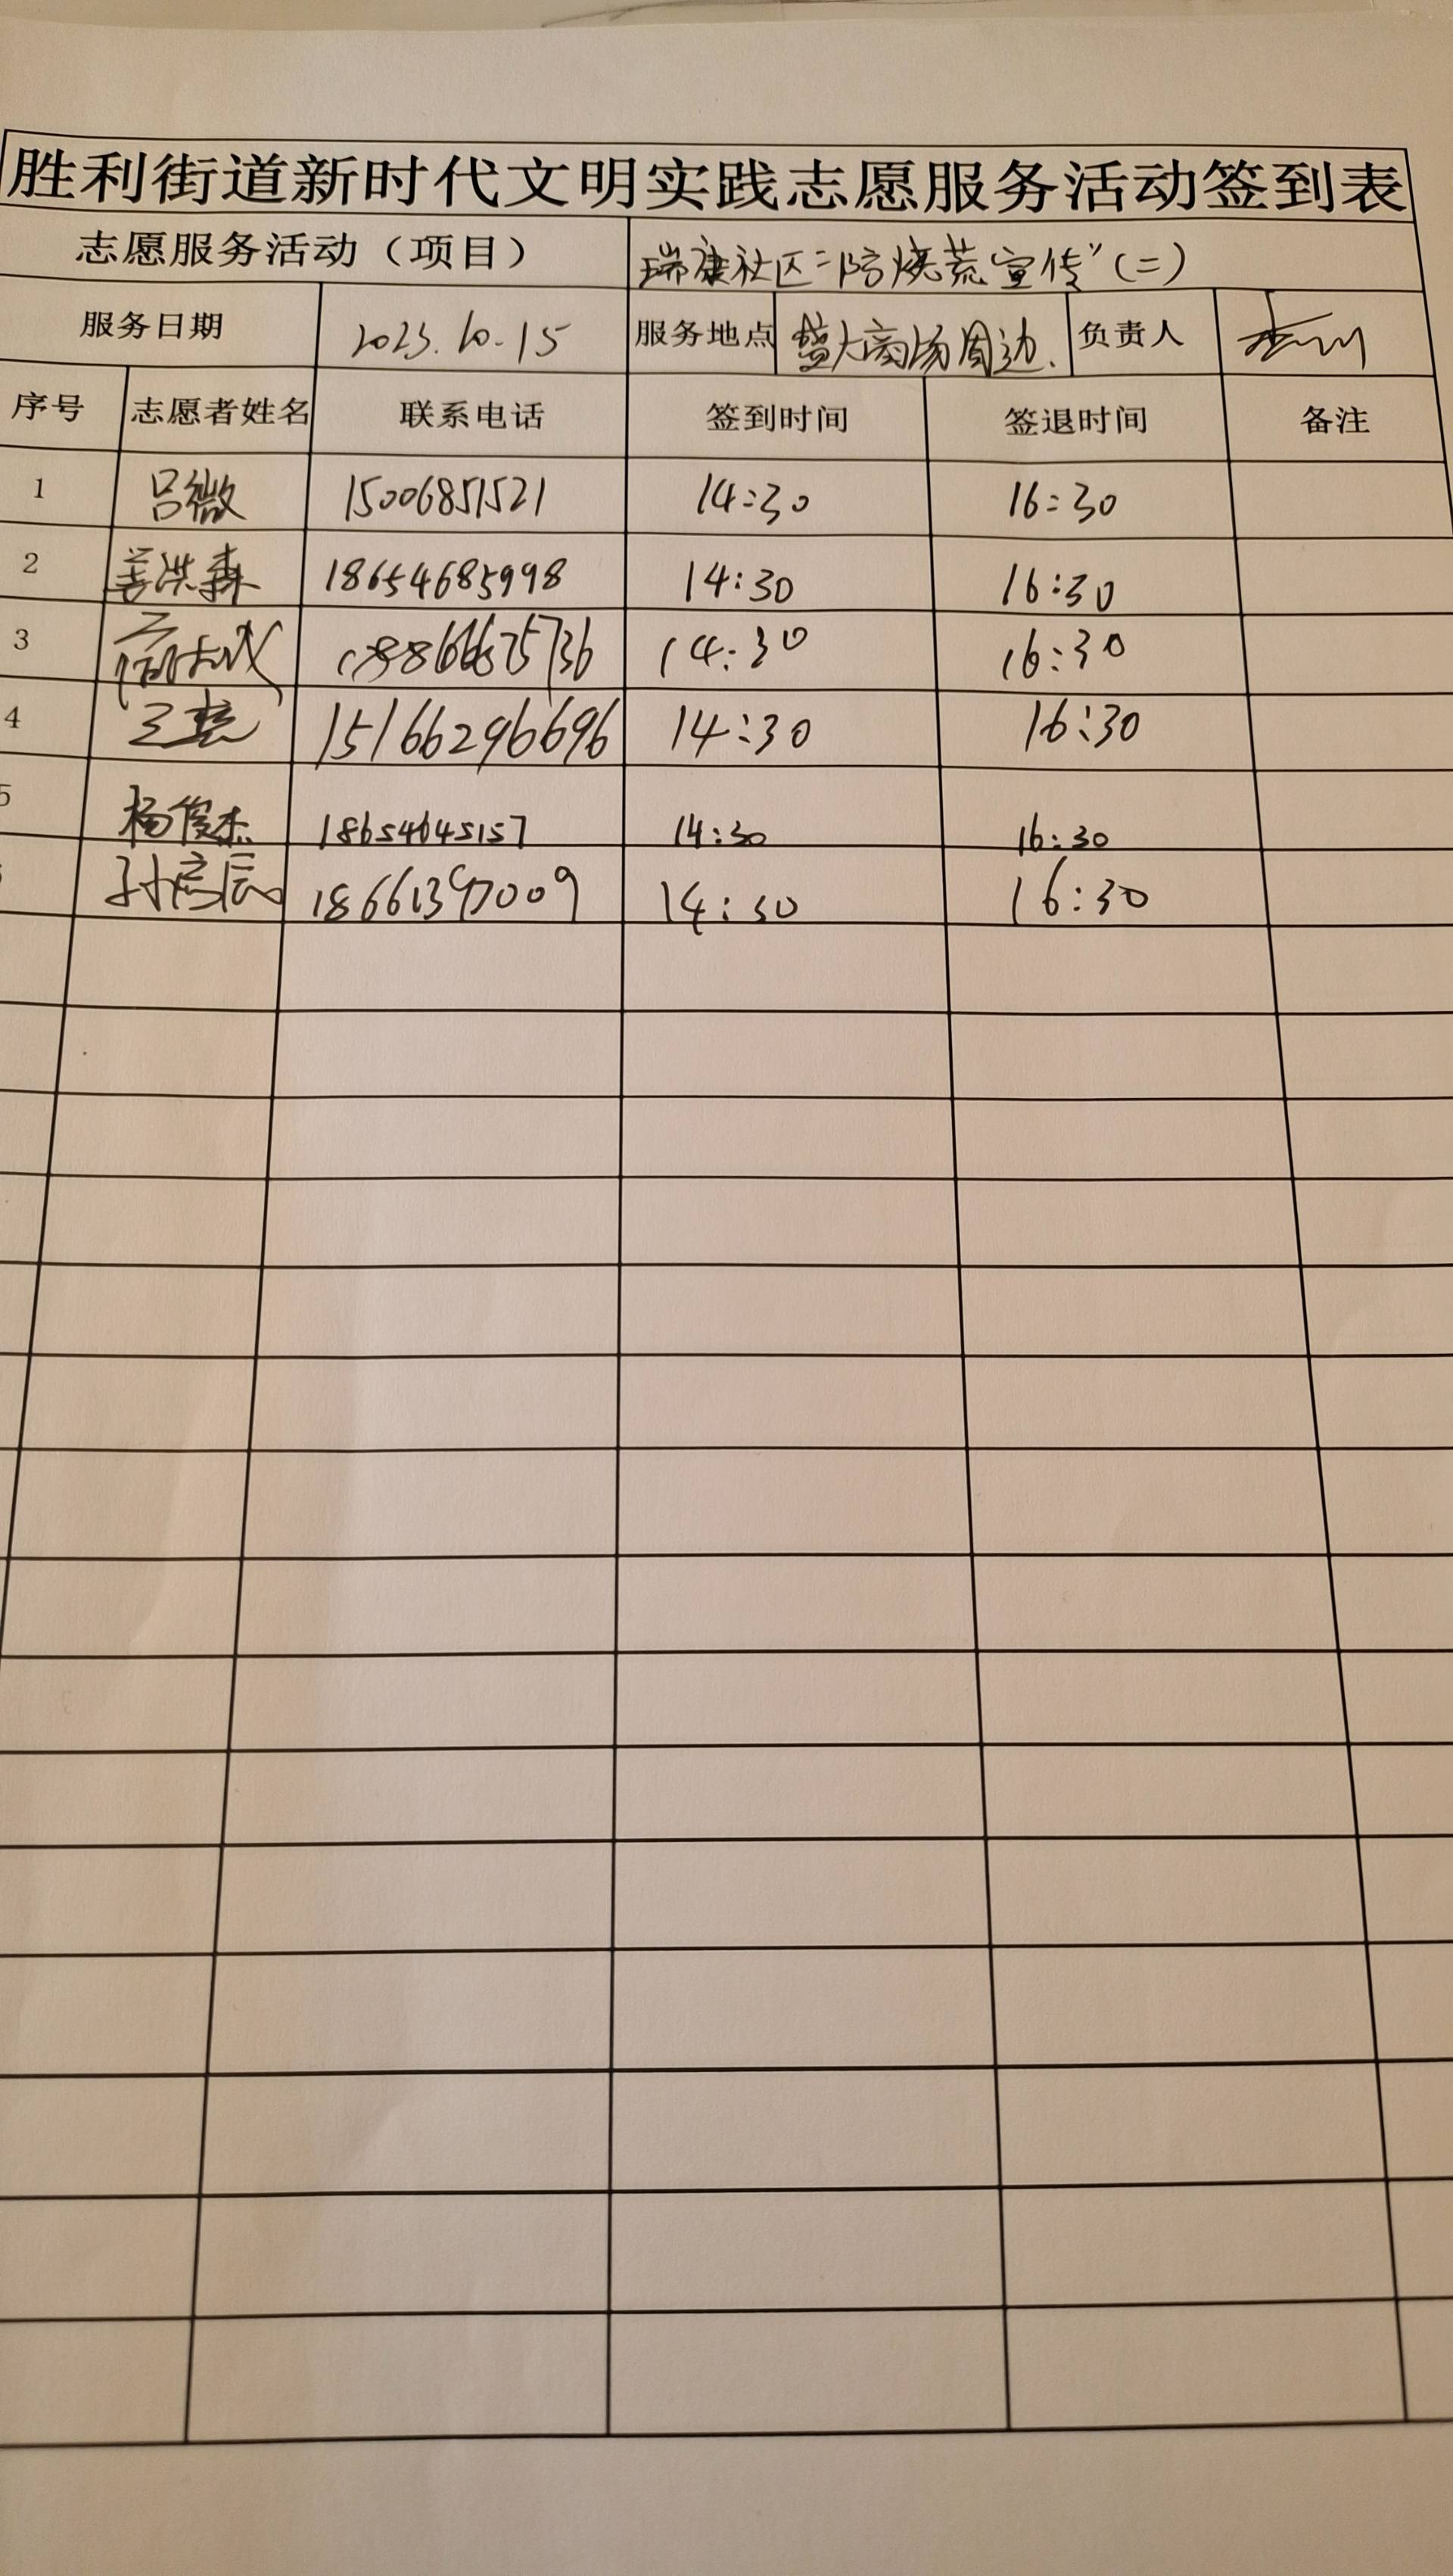 胜利街道新时代文明实践志愿服务活动签到表
志愿服务活动（项目） 瑞康社区"防烧荒宣传"(二)
服务日期 2023.10.15 服务地点 盛大商场周边. 负责人
序号 志愿者姓名 联系电话 签到时间 签退时间 备注
1 吕微 15006851521 14:30 16:30
2 姜洪森 18654685998 14:30 16:30
3 14:30 16:30
4 15166296696 14:30 16:30
5 杨俊杰 18654645157 14:30 16:30
孙彦辰 14:30 16:30